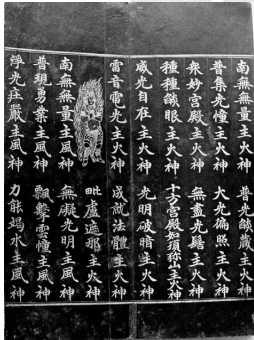 南無無量主火神 普光燄藏主火神
普集光幢主火神 大光徧照主火神
衆妙宮殿主火神 無盡光髻主火神
種種燄眼主火神 十方宮殿如須弥山主火神
威光自在主火神 光明破暗主火神
雷音電光主火神 成就法體主火神
毗盧遮那主火神
南無無量主風神 無礙光明主風神
普現勇業主風神 飄擊雲幢主風神
淨光莊嚴主風神 力能竭水主風神